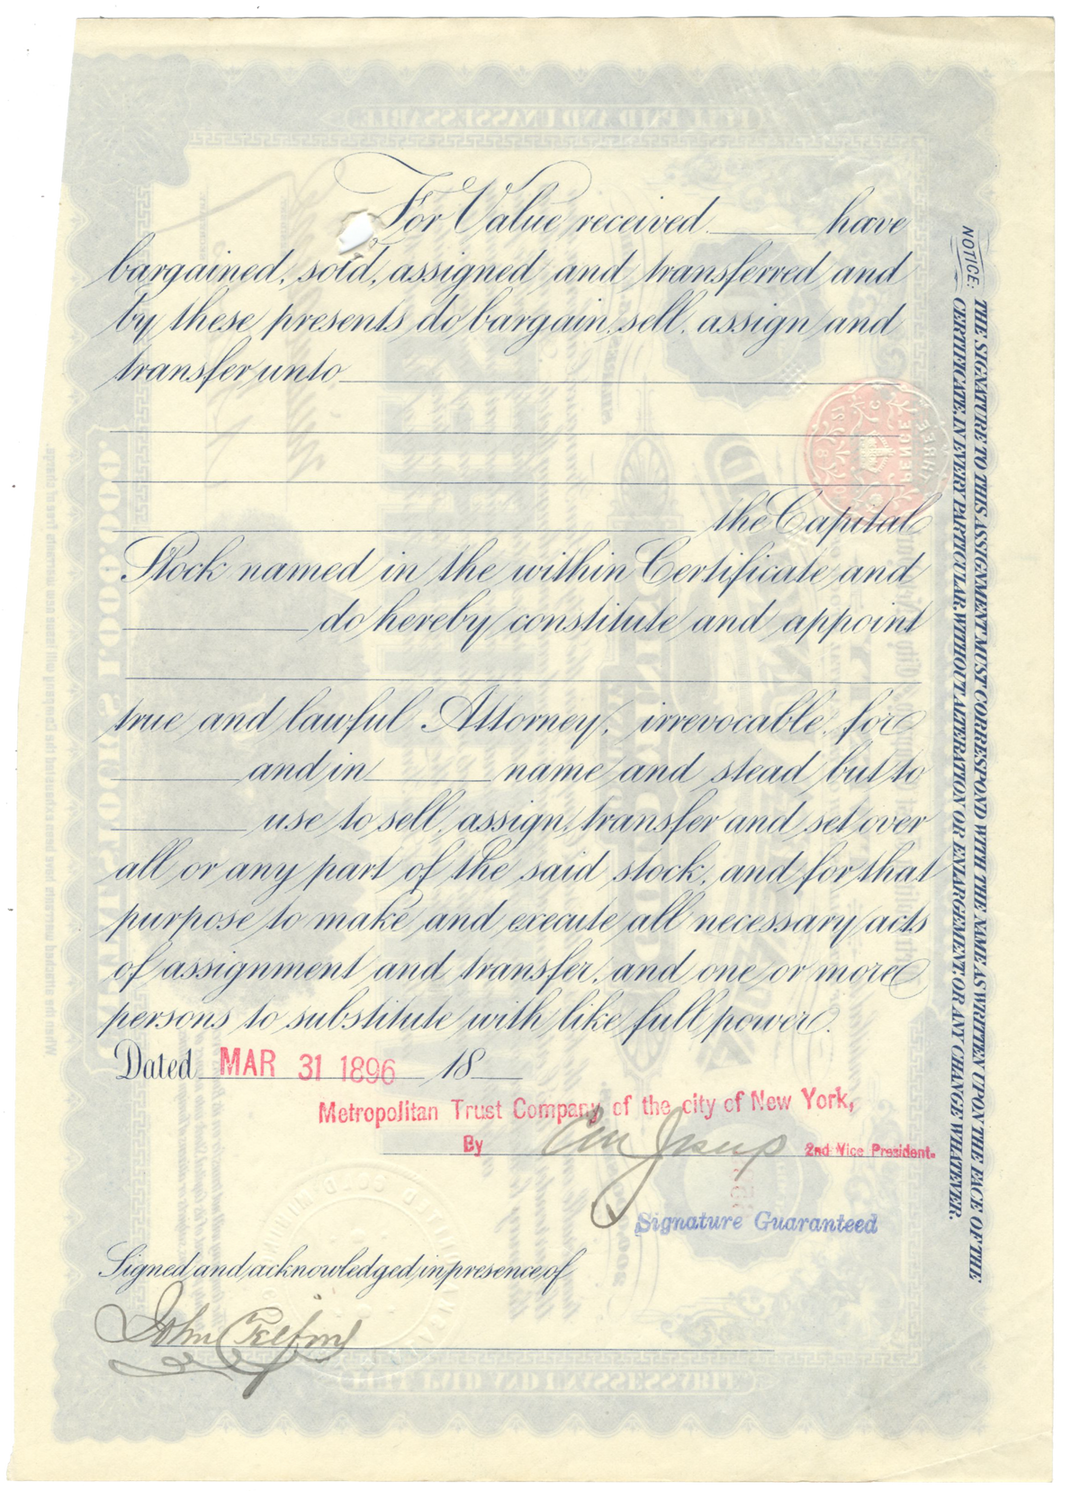 For Value received ______ have
bargained, sold, assigned and transferred and
by these presents do bargain, sell, assign and
transfer unto ______
______ the Capital
Stock named in the within Certificate and
______ do hereby constitute and appoint
______
true and lawful Attorney, irrevocable for
______ and in ______ name and stead but to
______ use to sell, assign, transfer and set over
all or any part of the said stock, and for that
purpose to make and execute all necessary acts
of assignment and transfer, and one or more
persons to substitute with like full power.
Dated MAR 31 1896 18__
Metropolitan Trust Company of the city of New York,
By Jesup 2nd Vice President.
Signature Guaranteed
Signed and acknowledged in presence of
John
NOTICE: THE SIGNATURE TO THIS ASSIGNMENT MUST CORRESPOND WITH THE NAME AS WRITTEN UPON THE FACE OF THE
CERTIFICATE, IN EVERY PARTICULAR, WITHOUT ALTERATION OR ENLARGEMENT OR ANY CHANGE WHATEVER.
THREE PENCE
FULL PAID AND UNASSESSABLE
FULL PAID AND UNASSESSABLE